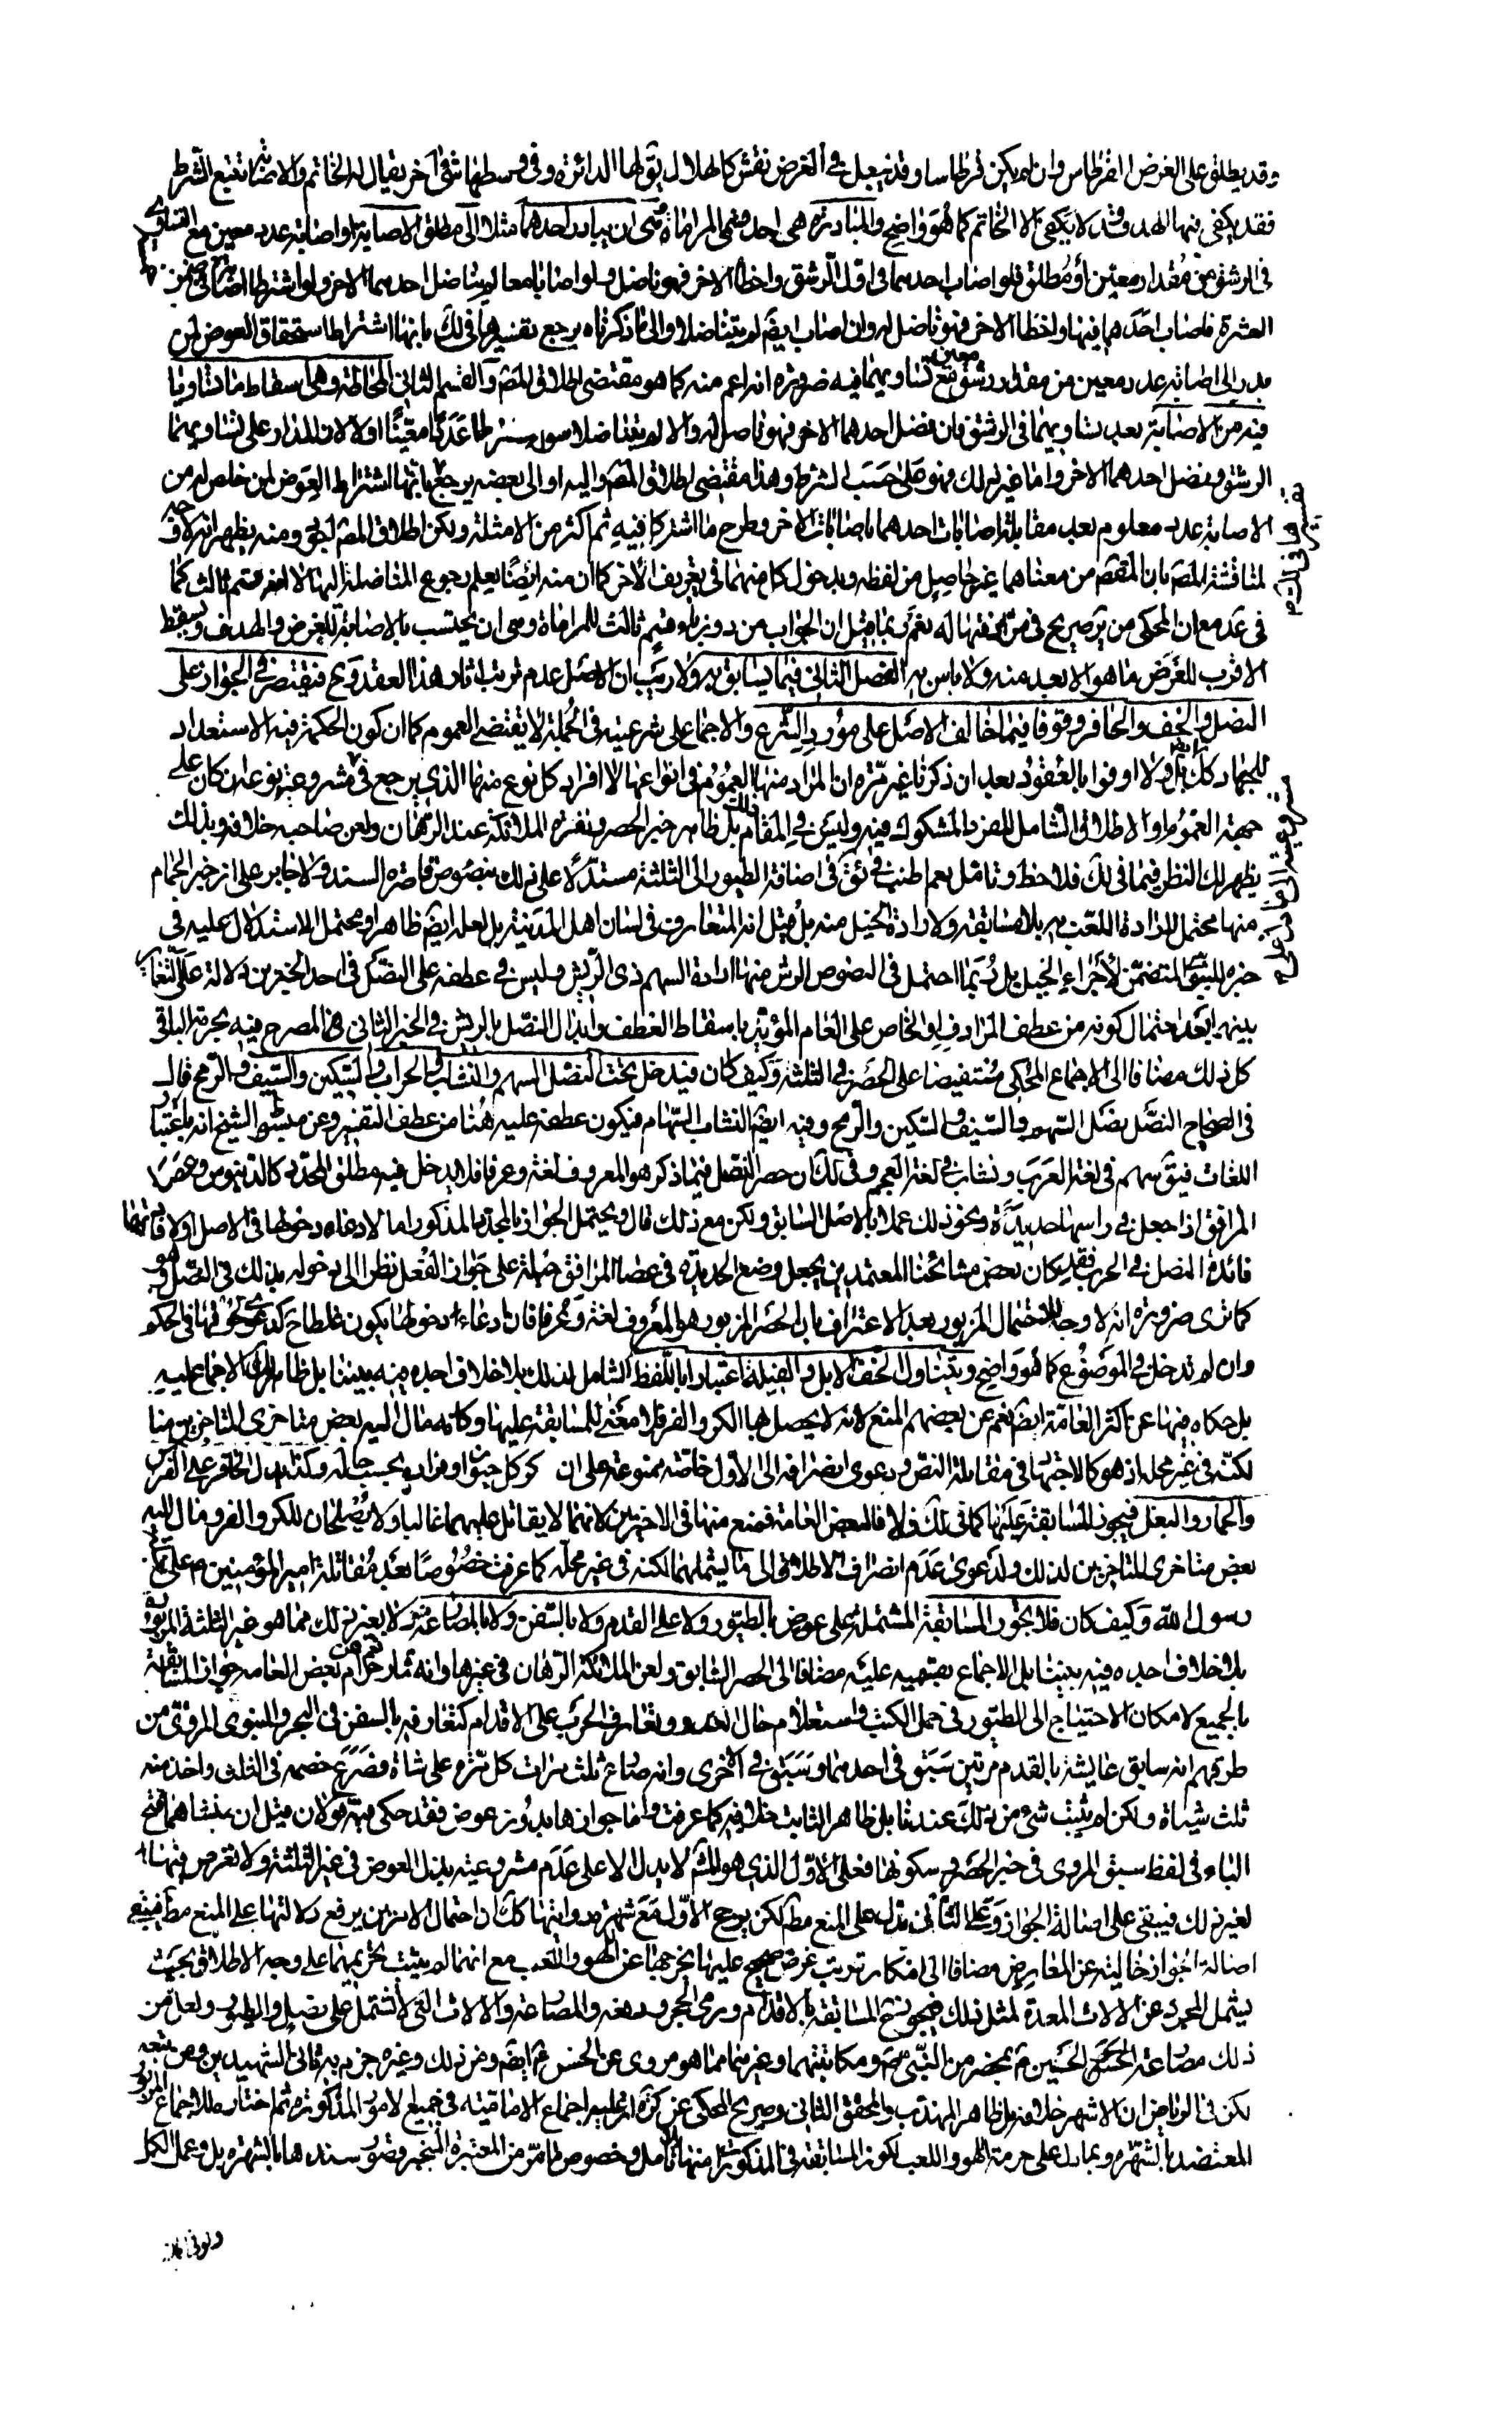 وقد يطلق على الغرض القرطاس وان لم يكن قرطاسا وقد يجعل في الغرض نقش كالهلال يق لها الدائرة وفي وسطها شئ آخر يقال له الخاتم والاصابة تتبع الشرط
فقد يكفى فيها الهدف وقد لا يكفى الا الخاتم كما هو واضح والمبادرة هي احد قسمى المراماة وهى ان يبادر احدهما مثلا الى مطلق الاصابة او اصابة عدد معين مع التساوى
في الرشق من مقدار معين أو مطلق فلو اصاب احدهما في اول الرشق واخطا الاخر فهو ناضل ولو اصابا معا لم يناضل احدهما الاخر ولو اشترطا
العشرة فاصاب احدهم فيها واخطا الاخر فهو ناضل له وان اصاب ايضم لم يتناضلا والى ما ذكرناه يرجع تفسيرها في لك بانها اشتراط استحقاق العوض لمن
بدر الى اصابة عدد معين من مقدار رشق معين مع تساويهما فيه ضرورة انه اعم منه كما هو مقتضى اطلاق المصم والقسم الثانى المحاطة وهى اسقاط ما تساويا
فيه من الاصابة بعد تساويهما في الرشق فان فضل احدهما الاخر فهو ناضل له والا لم يتناضلا سواء شرطا عددا معينا او لا لان المدار على تساويهما
الرشق وفضل احدهما الاخر واما غير ذلك فهو على حسب الشرط وهذا مقتضى اطلاق المصم واليه او الى بعضه يرجع بانها اشتراط العوض لمن خلص له من
الاصابة عدد معلوم بعد مقابلة اصابات احدهما باصابات الاخر وطرح ما اشتركا فيه ثم اكثر من الامثلة ولكن اطلاق المصم ومنه يظهر انه لا وجه
لمناقشة المصم بان المفهم من معناهما غير حاصل من لفظه وبدخول كل منهما في تعريف الاخر كما ان منه ايضا يعلم رجوع المناضلة اليهما لا انها قسم ثالث كما
في عد مع ان المحكى من ير صريح في مرادفتها له نعم ربما قيل ان الحواب من دونز بلو قسم ثالث للمراماة وهى ان يحتسب بالاصابة للغرض والهدف ويسقط
الاقرب للغرض ما هو الابعد منه ولا باس به الفصل الثانى فيما يسابق به ولا ريب ان الاصل عدم ترتب اثار هذا العقد وح فيقتصر في الجواز على
النصل والخف والحافر وقوفا فيما خالف الاصل على مورد الشرع والاجماع على شرعيته في الجملة لا يقتضى العموم كما ان كون الحكمة فيه الاستعداد
للجهاد كك بل ولا اوفوا بالعقود بعد ان ذكرنا غير مرة ان المراد منها العموم في انواعها لا افراد كل نوع منها الذى يرجع في مشروعية نوعه كان على
جهة العموم او الاطلاق الشامل للفرد المشكوك فيه وليس في المقام ذلك بل ظاهر خبر الحصر ونفرة الملائكة عند الرهان ولعن صاحبه خلافه وبذلك
يظهر لك النظر فيما في لك فلاحظ وتامل نعم اطنب في ئق في اضافة الطيور الى الثلثة مستدلا على ذلك بنصوص قاصرة السند ولا جابر على ان خبر الحمام
منها محتمل لارادة اللعب به بلا مسابقة ولارادة الخيل منه بل قيل انه المتعارف في لسان اهل المدينة بل لعله ايضم ظاهر او محتمل الاستدلال عليه في
خبره المتضمن لاجراء الخيل بل ربما احتمل في النصوص الريش منها ارادة السهم ذى الريش وليس في عطفه على النصل في احد الخبرين دلالة على التغاير
بينهما بعد احتمال كونه من عطف المرادف او الخاص على العام المؤيد باسقاط العطف وابدال النصل بالريش في الخبر الثانى المصرح فيه بحرمة الباقى
كل ذلك مضافا الى الاجماع المحكى مستفيضا على الحصر في الثلثة وكيف كان فيدخل تحت النصل السهم والنشاب والحراب والسكين والسيف والرمح قال
في الصحاح النصل نصل السهم والسيف والسكين والرمح وفيه ايضم النشاب السهام فيكون عطفه عليه هنا من عطف التفسير وعن مبسوط الشيخ انه باعتبار
اللغات فيق سهم في لغة العرب ونشاب في لغة العجم وفي لك ان حصر النصل فيما ذكر هو المعروف لغة وعرفا فلا يدخل فيه مطلق المحدد كالدبوس وعصا
المرافق اذا جعل في راسها حديدة ونحو ذلك عملا بالاصل السابق ولكن مع ذلك قال ويحتمل الجواز بالمحدد المذكور اما لادعاء دخولها في الاصل اولا فادتها
فائدة النصل في الحرب فقد كان بعض مشائخنا المعتمدين يجعل وضع الحديدة في عصا المرافق حيلة على جواز الفعل نظرا الى دخوله بذلك في النصل وهو
كما ترى ضرورة انه لا وجه للاحتمال المزبور بعد الاعتراف بان الحصر المزبور هو المعروف لغة وعرفا فان ادعاء دخولها يكون غلطا ح كدعوى لحوقها في الحكم
وان لم تدخل في الموضوع كما هو واضح ويتناول الخف الابل والفيلة اعتبارا باللفظ الشامل لذلك بلا خلاف اجده فيه بيننا بل ظاهر لك الاجماع عليه
بل حكاه فيها عن اكثر العامة ايضم نعم عن بعضهم المنع لانه لا يحصل بها الكر والفر فلا معنى للمسابقة عليها وكانه مال اليه بعض متاخرى المتاخرين منا
لكنه في غير محله اذ هو كالاجتهاد في مقابلة النص ودعوى انصرافه الى الاول خاصة ممنوعة على ان كر كل حيوان وفراره بحسب حاله وكذا يدل الحافر على الفرس
والحمار والبغل فيجوز المسابقة عليها كما في لك ولا فالبعض العامة فمنع منها في الاخيرين لانهما لا يقاتل عليهما غالبا ولا يصلحان للكر والفر ومال اليه
بعض متاخرى المتاخرين لذلك ولدعوى عدم انصراف الاطلاق الى ما يشملهما لكنه في غير محله كما عرفت خصوصا بعد مقاتلة امير المؤمنين م على بغلة
رسول الله وكيف كان فلا يجوز المسابقة المشتملة على عوض بالطيور ولا على القدم ولا بالسفن ولا بالمصارعة ولا بغير ذلك مما هو غير الثلثة المزبورة
بلا خلاف اجده فيه بيننا بل الاجماع بقسميه عليه مضافا الى الحصر السابق ولعن الملائكة الرهان في غيرها وانه قمار حرام نعم عن بعض العامة جواز المسابقة
بالجميع لامكان الاحتياج الى الطيور في حمل الكتب واستعلام حال العدو وتعارف الحرب على الاقدام كتعارفه بالسفن في البحر والنبوى المروى من
طرقهم انه سابق عايشة بالقدم مرتين سبق في احدهما وسبق في الاخرى وانه صارع ثلث مرات كل مرة على شاة فصرع خصمه في الثلث واخذ منه
ثلث شياة ولكن لم يثبت شئ من ذلك عندنا بل ظاهر الثابت خلافه كما عرفت واما جوازها بدون عوض فقد حكى فيه قولان قيل ان منشاهما فتح
الباء في لفظ سبق المروى في خبر الحصر وسكونها فعلى الاول الذى هو المشهور لا يدل الا على عدم مشروعية بذل العوض في غير الثلثة ولا تعرض فيها
لغير ذلك فيبقى على اصالة الجواز وعلى الثانى يدل على المنع مطم لكن يرجح الاول مع شهرته روايتها كك ان احتمال الامرين يرفع دلالتها على المنع مطم فيبقى
اصالة الجواز خالية عن المعارض مضافا الى امكان ترتب غرض صحيح عليها يخرجها عن اللهو واللعب مع انهما لم يثبت تحريمهما على وجه الاطلاق بحيث
يشمل المجرد عن الالات المعدة لمثل ذلك فيجوز ح المسابقة بالاقدام ورمى الحجر ودفعه والمصارعة والالات التى لا تشتمل على نصل والطيور ولعل من
ذلك مصارعة الحسن والحسين م بمحضر من النبى صم ومكاتبتهما وغيرهما مما هو مروى عن الحسن م ايضم ومن ذلك وغيره جزم به ثانى الشهيدين ومن تبعه
لكن في الرياض ان الاشهر خلافه بل ظاهر المهذب والمحقق الثانى وصريح المحكى عن كرة ان عليه اجماع الامامية في جميع الامور المذكورة ثم اختاره للاجماع المزبور
المعتضد بالشهرة وبما دل على حرمة اللهو واللعب لكون المسابقة في المذكورات منها بلا تامل وخصوص ما مر من المعتبرة المنجبر قصور سندها بالشهرة بل وعمل الكل